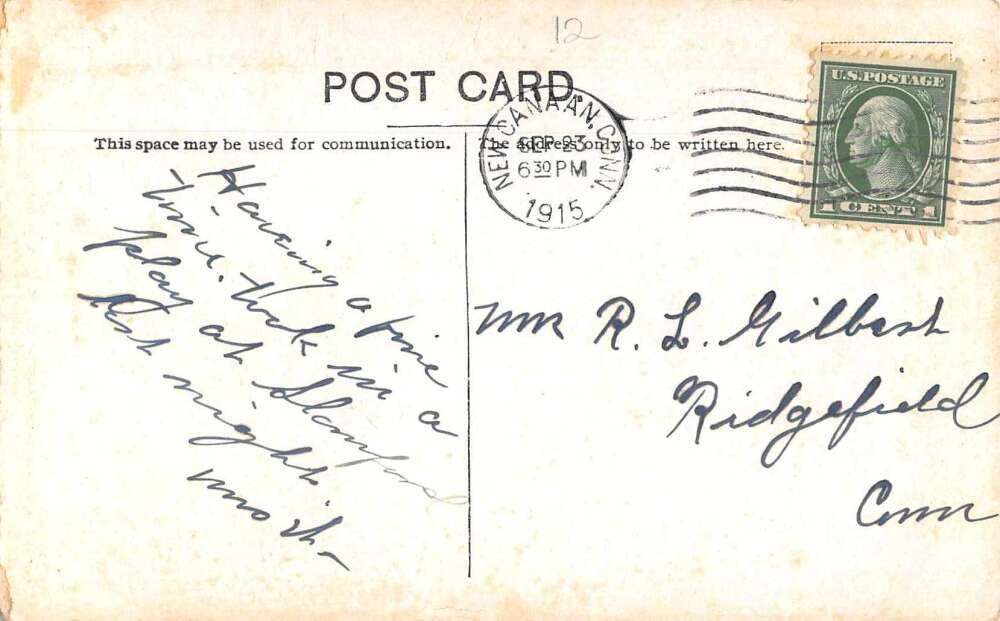 12
POST CARD.
This space may be used for communication.
The address only to be written here.
NEW CANAAN, CONN.
SEP 23
6 30 PM
1915
U.S. POSTAGE
1 CENT 1
Having a fine
time. Took in a
play at Stamford
last night.
Mr R. L. Gilbert
Ridgefield
Conn